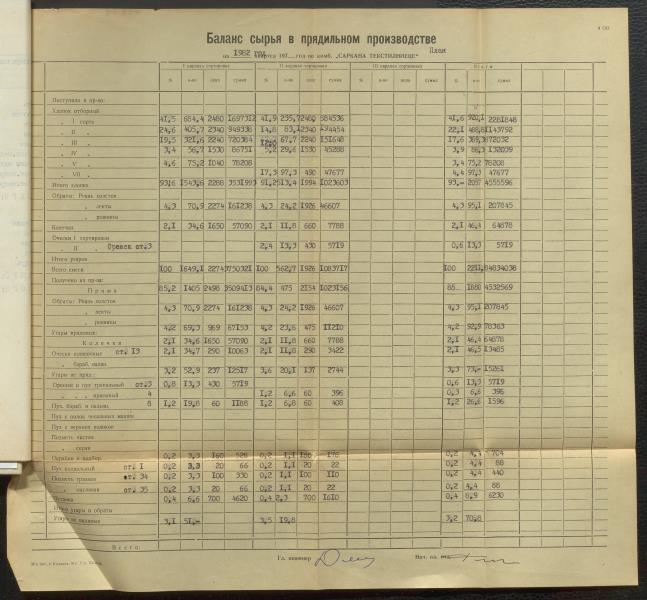 Баланс сырья в прядильном производстве
План
на 1982 год квартал 197 год по комб. „САРКАНА ТЕКСТИЛНИЕЦЕ"
I вариант сортировки II вариант сортировки III вариант сортировки Итого
% к-во цена сумма % к-во цена сумма % к-во цена сумма % к-во сумма
Поступило в пр-во:
Хлопок отборный
„ I сорта 41,5 684,4 2480 1697312 41,9 235,7 2480 584536 41,6 2281848
„ II „ 24,6 405,7 2340 949338 14,8 83,1 2340 22,1 488,8 1143792
„ III „ 19,5 321,6 2240 720384 67,7 2240 151648 17,6 872032
„ IV „ 3,4 56,7 1530 86751 5,2 29,6 1530 45288 3,9 132039
„ V „ 4,6 75,2 1040 78208 3,4 75,2 78208
„ VII „ 17,3 97,3 490 47677 4,4 97,3 47677
Итого хлопка 93,6 1543,6 2288 91,2 1994 1023603 93,- 2057 4555596
Обраты: Рвань холстов
„ ленты 4,3 70,9 2274 161238 4,3 24,2 1926 46607 4,3 95,1 207845
„ ровницы
Колечки 2,1 34,6 1650 57090 2,1 11,8 660 7788 2,1 46,4 64878
Очески I сортировки
„ II „ Орешек ст.3 2,4 13,3 430 5719 0,6 13,3 5719
Итого угаров
Всего смеси 100 1649,1 2274 3750321 100 562,7 1926 1083717 100 2211,8 4834038
Получено из пр-ва:
Пряжа 85,2 1405 2498 3509413 84,4 475 2154 1023156 85 1880 4532569
Обраты: Рвань холстов
„ ленты 4,3 70,9 2274 161238 4,3 24,2 1926 46607 4,3 95,1 207845
„ ровницы
Угары прядомые: 4,2 69,3 969 67153 4,2 23,6 475 11210 4,2 92,9 78363
Колечки 2,1 34,6 1650 57090 2,1 11,8 660 7788 2,1 46,4 64878
Очески шляпочные ст. 13 2,1 34,7 290 10063 2,1 11,8 290 3422 2,1 46,5 13485
„ бараб. валик.
Угары не пряд.: 3,2 52,9 237 12517 3,6 20,1 137 2744 3,3 73,- 15261
Орешек и пух трепальный ст.3 0,8 13,3 430 5719 0,6 13,3 5719
„ „ „ приемный 4 1,2 6,6 60 396 0,3 6,6 396
Пух бараб. и пыльн. 8 1,2 19,8 60 1188 1,2 6,8 60 408 1,2 26,6 1596
Пух с полок чесальных машин
Пух с верхних валиков
Подметь чистая
„ серая
0,2 3,3 160 528 0,2 1,1 160 176 0,2 4,4 704
Пух подвальный ст. 1 0,2 3,3 20 66 0,2 1,1 20 22 0,2 4,4 88
Подметь грязная ст. 34 0,2 3,3 100 330 0,2 1,1 100 110 0,2 4,4 440
„ масляная ст. 35 0,2 3,3 20 66 0,2 1,1 20 22 0,2 4,4 88
0,4 6,6 700 4620 0,4 2,3 700 1610 0,4 8,9 6230
Итого угары и обраты
Угары не видимые 3,1 51,- 3,5 19,8 3,2 70,8
Всего:
Гл. инженер Нач. пл. отд.